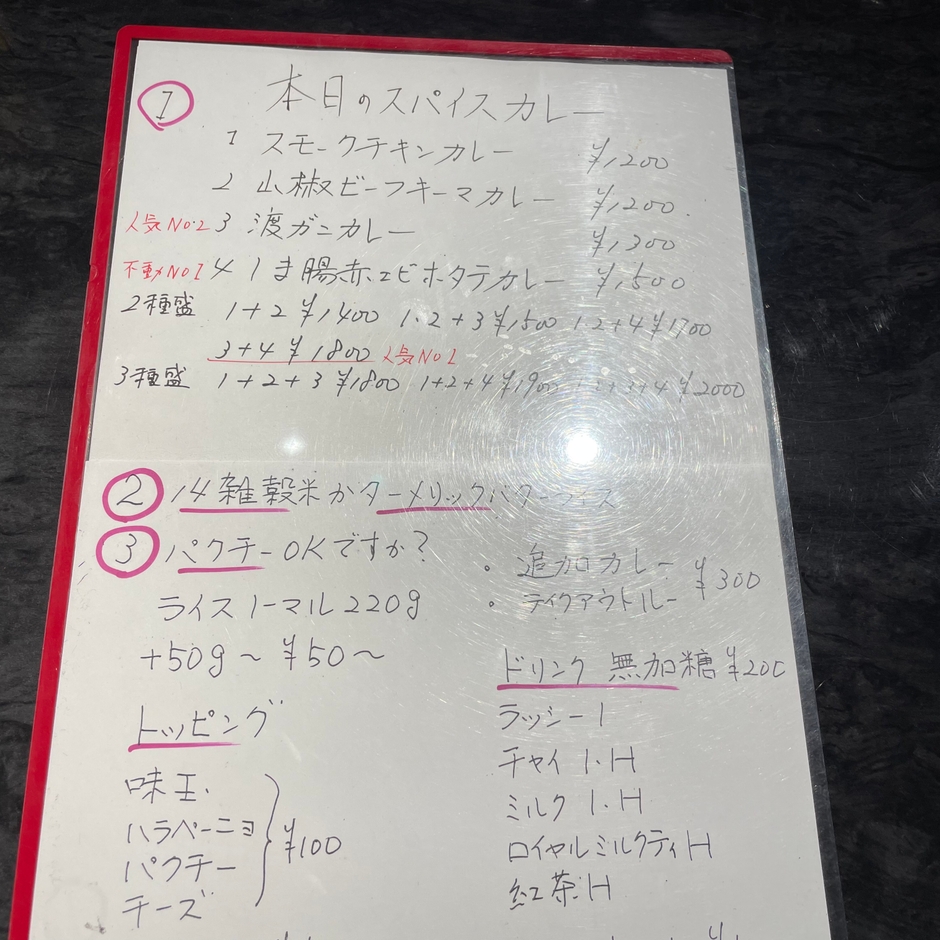 ① 本日のスパイスカレー
1 スモークチキンカレー ¥1,200
2 山椒ビーフキーマカレー ¥1,200.
人気No.2 3 渡ガニカレー ¥1,300
不動No1 4 しま腸赤エビホタテカレー ¥1,500
2種盛 1+2 ¥1400 1.2+3 ¥1500 1.2+4 ¥1700
3+4 ¥1800 人気No1
3種盛 1+2+3 ¥1800 1+2+4 ¥1900 ¥2000
② 14雑穀米かターメリックバターライス
③ パクチーOKですか?
・追加カレー
・テイクアウトルー ¥300
ライスノーマル220g
+50g〜¥50〜
ドリンク 無加糖 ¥200
トッピング
ラッシー I
チャイ I.H
ミルク I.H
ロイヤルミルクティ H
紅茶.H
味玉.
ハラペーニョ
パクチー
チーズ
¥100